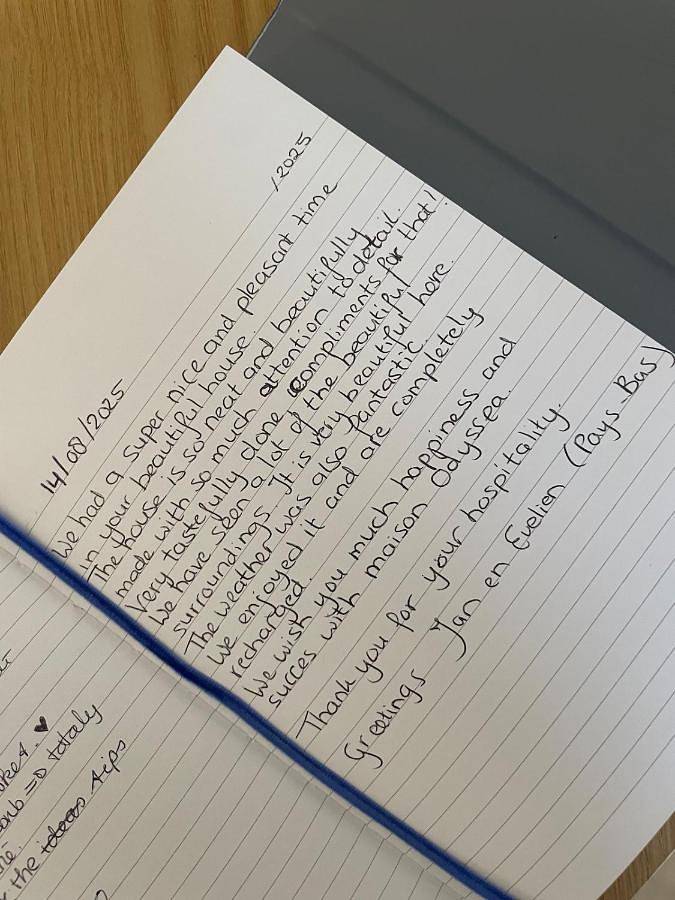 14/08/2025 /2025
We had a super nice and pleasant time
in your beautiful house.
The house is so neat and beautifully
made with so much attention to detail.
Very tastefully done compliments for that!
We have seen a lot of the beautiful
surroundings. It is very beautiful here.
The weather was also fantastic.
We enjoyed it and are completely
recharged.
We wish you much happiness and
succes with maison Odyssea.
Thank you for your hospitality.
Greetings Jan en Evelien (Pays-Bas)
=D totaly
the tips